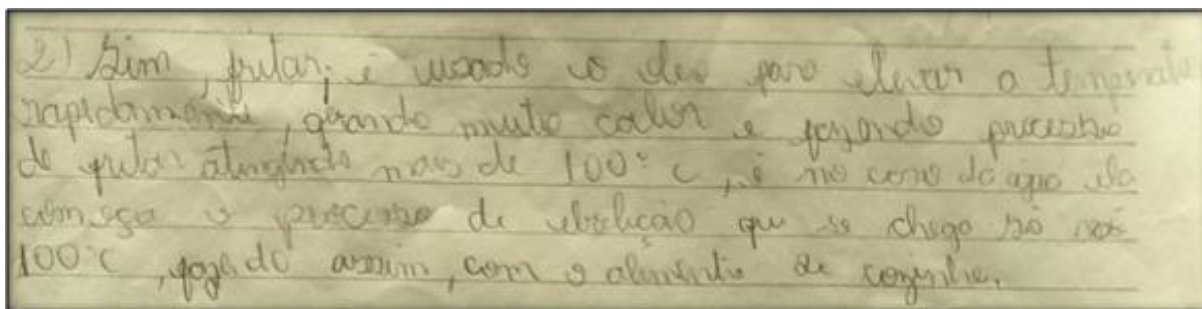 2) Sim, fritar; é usado o óleo para elevar a temperatu
rapidamente, gerando muito calor e fazendo processo
de fritar atingindo mais de 100° c, é no caso da água ela
começa o processo de ebulição que se chega só nos
100°C, fazedo assim, com o alimento se cozinhe.